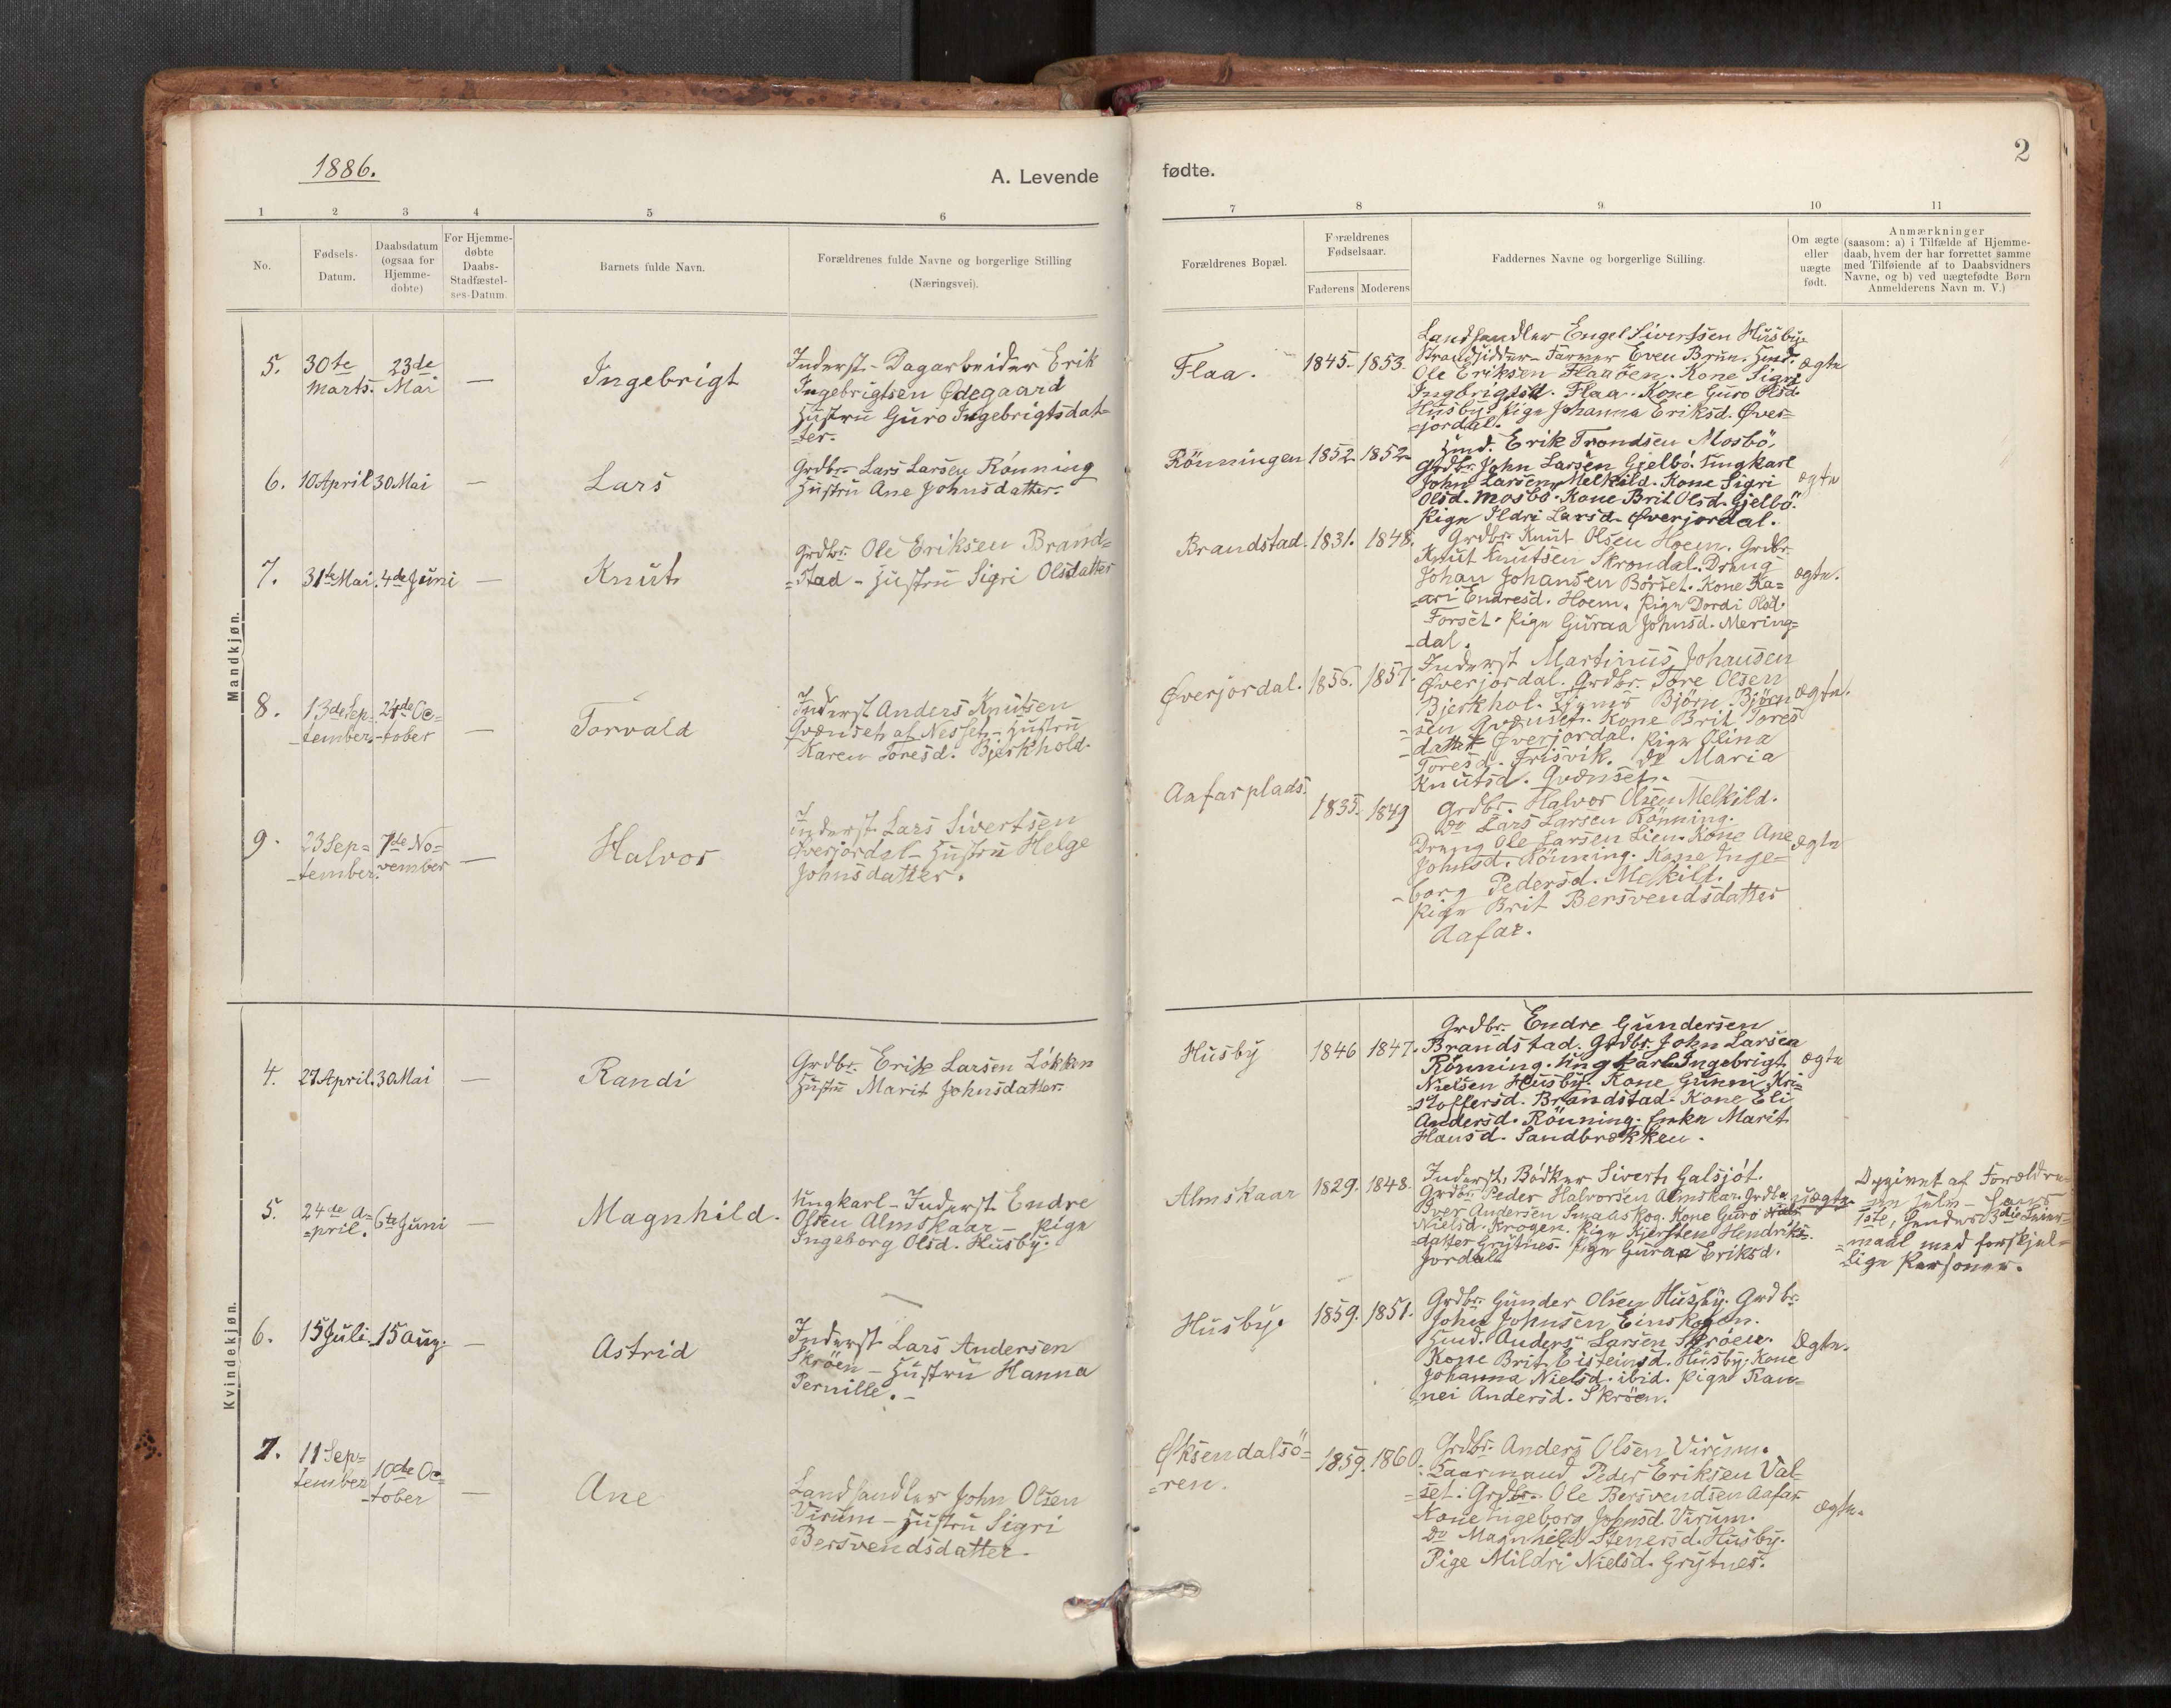 1886.
A. Levende
1 2 3 4 5 6
No.
Fødsels-
Datum.
Daabsdatum
(ogsaa for
Hjemme-
døbte)
For Hjemme-
døbte
Daabs-
Stadfæstel-
ses-Datum.
Barnets fulde Navn.
Forældrenes fulde Navne og borgerlige Stilling
(Næringsvei).
Mandkjøn.
5.
30te
Marts.
23de
Mai
—
Ingebrigt
Inderst - Dagarbeider Erik
Ingebrigtsen Ødegaard
Hustru Guro Ingebrigtsdat=
=ter.
6. 10 April 30 Mai — Lars
Grdbr. Lars Larsen Rönning
Hustru Ane Johnsdatter.
7. 31te Mai. 4de Juni — Knut
Grdbr. Ole Eriksen Brand=
=stad - Hustru Sigri Olsdatter
8.
13de Sep=
=tember.
24de Oc=
=tober
—
Torvald
Inderst Anders Knutsen
Gvænset af Nesset - Hustru
Karen Toresd. Bjerkhold.
9.
23 Sep=
=tember.
7de No=
vember
—
Halvor
Inderst Lars Sivertsen
Øverjordal - Hustru Helge
Johnsdatter.
Kvindekjøn.
4. 27 April. 30 Mai — Randi
Grdbr. Erik Larsen Lökken
Hustru Marit Johnsdatter.
5.
24de A=
=pril.
6te Juni
—
Magnhild.
Ungkarl - Inderst Endre
Olsen Almskaar - Pige
Ingeborg Olsd. Husby.
6. 15 Juli. 15 Aug. — Astrid
Inderst Lars Andersen
Skröen - Hustru Hanna
Pernille. -
7.
11 Sep=
tember
10de Oc=
=tober
—
Ane
Landhandler John Olsen
Virum - Hustru Sigri
Bersvendsdatter.
fødte.
2
7 8 9. 10 11
Forældrenes Bopæl.
Forældrenes
Fødselsaar.
Faderens Moderens
Faddernes Navne og borgerlige Stilling.
Om ægte
eller
uægte
født.
Anmærkninger
(saasom: a) i Tilfælde af Hjemme-
daab, hvem der har forrettet samme
med Tilføiende af to Daabsvidners
Navne, og b) ved uægtefødte Børn
Anmelderens Navn m. V.)
Flaa. 1845. 1853.
Landhandler Engel Sivertsen Husby
Strandsidder - Farver Even Brun. Gmd.
Ole Eriksen Flaaöen. Kone Sigri
Ingbrigtsd. Flaa. Kone Guro Olsd.
Husby. Pige Johanna Eriksd. Øver=
=jordal.
Ægte
Rönningen 1852. 1852.
Gmd. Erik Trondsen Mosbö.
Grdbr. John Larsen Gjelbö. Ungkarl
John Larsen Melkild. Kone Sigri
Olsd. Mosbö. Kone Brit Olsd. Gjelbö.
Pige Ildri Larsd. Øverjordal.
Ægte
Brandstad. 1831. 1848.
Grdbr. Knut Olsen Hoem. Grdbr.
Knut Knutsen Skrondal. Dreng
Johan Johansen Börset. Kone Ka=
=ari Endresd. Hoem. Pige Dordi Olsd.
Forset. Pige Guraa Johnsd. Mering=
=dal.
Ægte.
Øverjordal. 1856. 1857.
Inderst Martinus Johansen
Øverjordal. Grdbr. Tore Olsen
Bjerkhol. Bjørn Bjørn=
=sen Gvænset. Kone Brit Tores
datter Øverjordal. Pige Olina
Toresd. Frisvik. Do Maria
Knutsd. Gvænset.
Ægte.
Aafarplads. 1835. 1849
Grdbr. Halvor Olsen Melkild.
Do Lars Larsen Rönning.
Dreng Ole Larsen Lien. Kone Ane
Johnsd. Rönning. Kone Inge=
=borg Pedersd. Melkild.
Pige Brit Bersvendsdatter
Aafar.
Ægte
Husby 1846 1847.
Grdbr. Endre Gundersen
Brandstad. Grdbr. John Larsen
Rönning. Ungkarl Ingebrigt
Nielsen Husby. Kone Gunni Kri=
=stoffersd. Brandstad. Kone Eli
Andersd. Rönning. Enke Marit
Hansd. Sandbrækken.
Ægte
Almskaar 1829. 1848.
Inderst, Bödker Sivert Galsjöt.
Grdbr. Peder Halvorsen Almskar. Grdbr.
Iver Andersen Smaaskog. Kone Guro
Nielsd. Krogen. Pige Kjersten Hendriks=
=datter Grytnes. Pige Guraa Eriksd.
Jordal.
uægte.
Opgivet af Forældre=
ne selv - Hans
1ste, hendes 3die Leier=
=maal med forskjel=
lige Personer.
Husby. 1859. 1851.
Grdbr. Gunder Olsen Husby. Grdbr.
John Johnsen Einskogen.
Gmd. Anders Larsen Skröen.
Kone Brit Eisteinsd. Husby. Kone
Johanna Nielsd. ibid. Pige Ran=
=nei Andersd. Skröen.
Ægte.
Øksendalsö=
=ren.
1859. 1860.
Grdbr. Anders Olsen Virum.
Gaarmand Peder Eriksen Val=
=set. Grdbr. Ole Bersvendsen Aafar
Kone Ingeborg Johnsd. Virum.
Do Magnhild Stenersd. Husby.
Pige Mildri Nielsd. Grytnes.
Ægte.